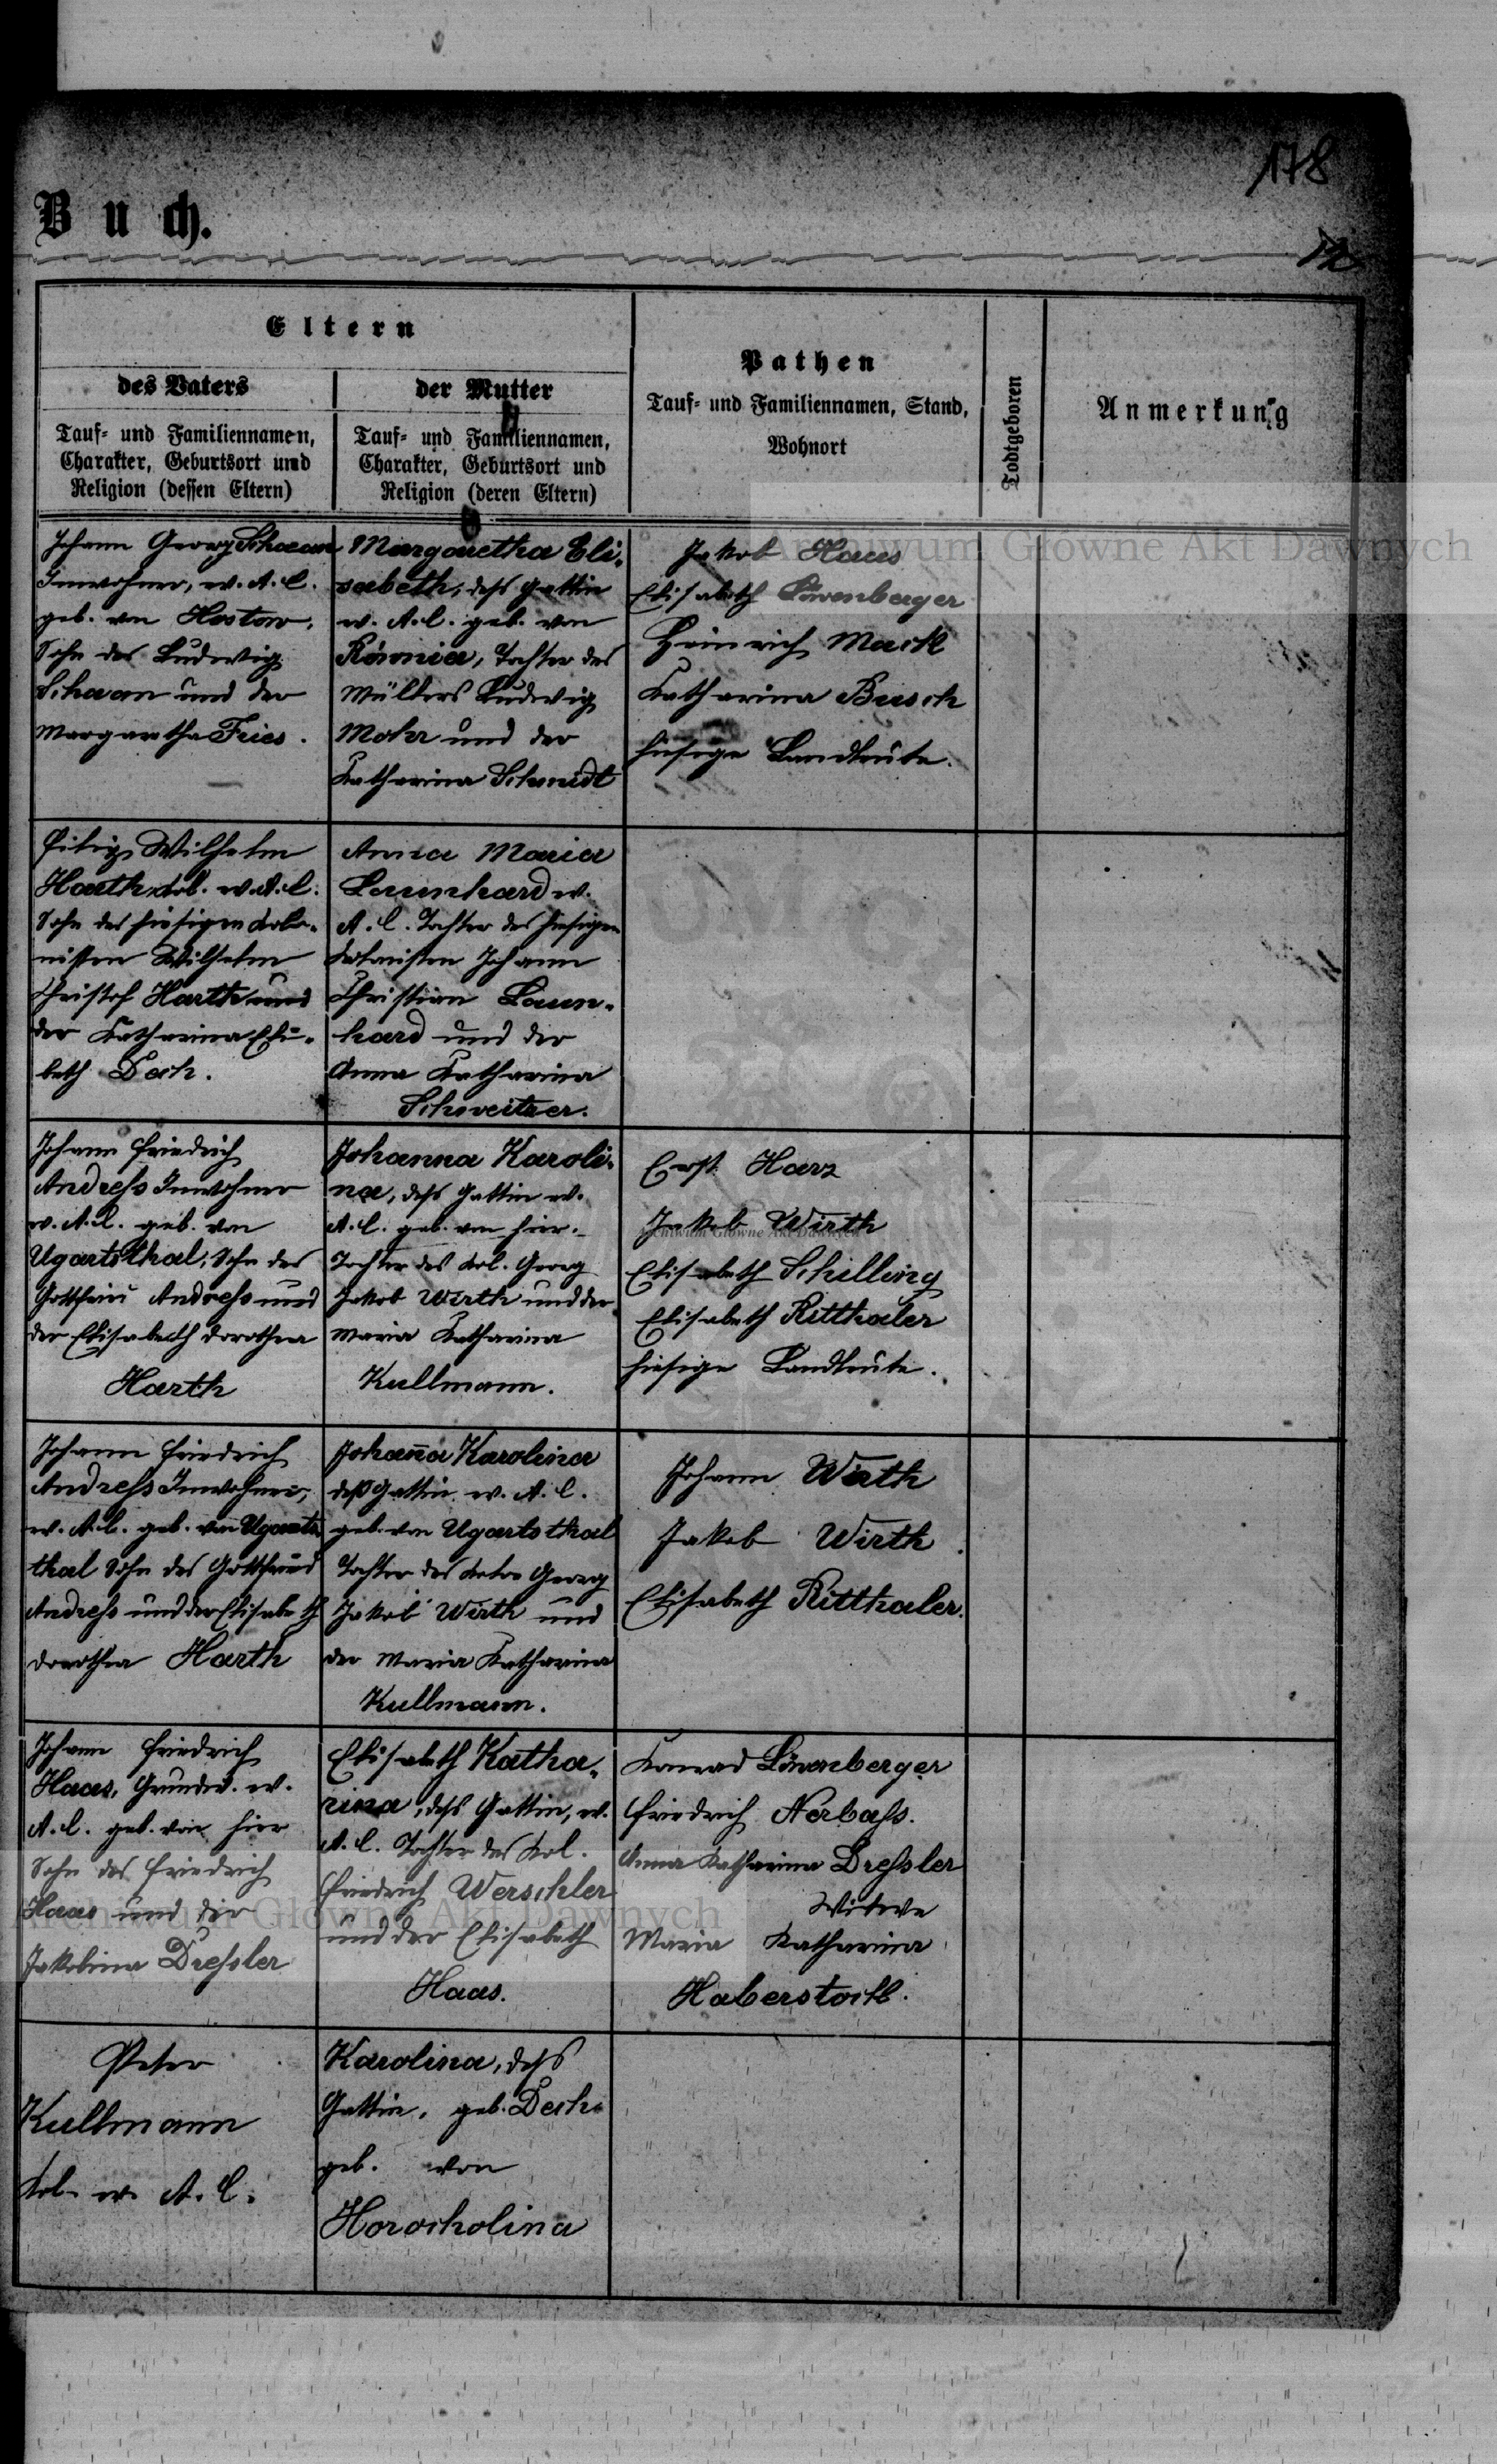 178
Buch.
Eltern
des Vaters
Tauf- und Familiennamen,
Charakter, Geburtsort und
Religion (dessen Eltern)
der Mutter
Tauf- und Familiennamen,
Charakter, Geburtsort und
Religion (deren Eltern)
Pathen
Tauf- und Familiennamen, Stand,
Wohnort
Todtgeboren
Anmerkung
Johann Georg Schaan
Inwohner, ev. A. C.
geb. von Hostow,
Sohn des Ludwig
Schaan und der
Margaretha Fries.
Margaretha Eli-
sabeth, dess Gattin
ev. A. C. geb. von
Równia, Tochter des
Müllers Ludwig
Mohr und der
Katharina Schmidt
Jakob Haas
Elisabeth Löwenberger
Heinrich Mack
Katharina Busch
hiesige Landleute.
Philipp Wilhelm
Harth, Kol. ev. A. C.
Sohn des hiesigen Kolo-
nisten Wilhelm
Christof Harth und
der Katharina Eli-
beth Dech.
Anna Maria
Launhard ev.
A. C. Tochter des hiesigen
Kolonisten Johann
Christian Laun-
hard und der
Anna Katharina
Schweitzer.
Johann Friedrich
Andreſs Inwohner
ev. A. C. geb. von
Ugartsthal, Sohn des
Gottfried Andreſs und
der Elisabeth Dorothea
Harth
Johanna Karoli-
na, dess Gattin ev.
A. C. geb. von hier.
Tochter des Kol. Georg
Jakob Wirth und der
Maria Katharina
Kullmann.
Ernst Harz
Jakob Wirth
Elisabeth Schilling
Elisabeth Ritthaler
hiesige Landleute.
Johann Friedrich
Andreſs Inwohner,
ev. A. C. geb. von Ugarts
thal Sohn des Gottfried
Andreſs und der Elisabeth
Dorothea Harth
Johan̄a Karolina
deß Gattin ev. A. C.
geb. von Ugartsthal
Tochter des Georg
Jakob Wirth und
der Maria Katharina
Kullmann.
Johann Wirth
Jakob Wirth
Elisabeth Ritthaler.
Johann Friedrich
Haas, Grundw. ev.
A. C. geb. von hier
Sohn des Friedrich
Haas und der
Jakobina Dreſsler
Elisabeth Katha-
rina, dess Gattin, ev.
A. C. Tochter des Kol.
Friedrich Werschler
und der Elisabeth
Haas.
Konrad Löwenberger
Friedrich Nerbaſs.
Anna Katharina Dreſsler
Witwe
Maria Katharina
Haberstock.
Peter
Kullmann
Kol. ev. A. C.
Karolina, dess
Gattin, geb. Dech
geb. von
Horocholina
Archiwum Główne Akt Dawnych
Archiwum Główne Akt Dawnych
Archiwum Główne Akt Dawnych